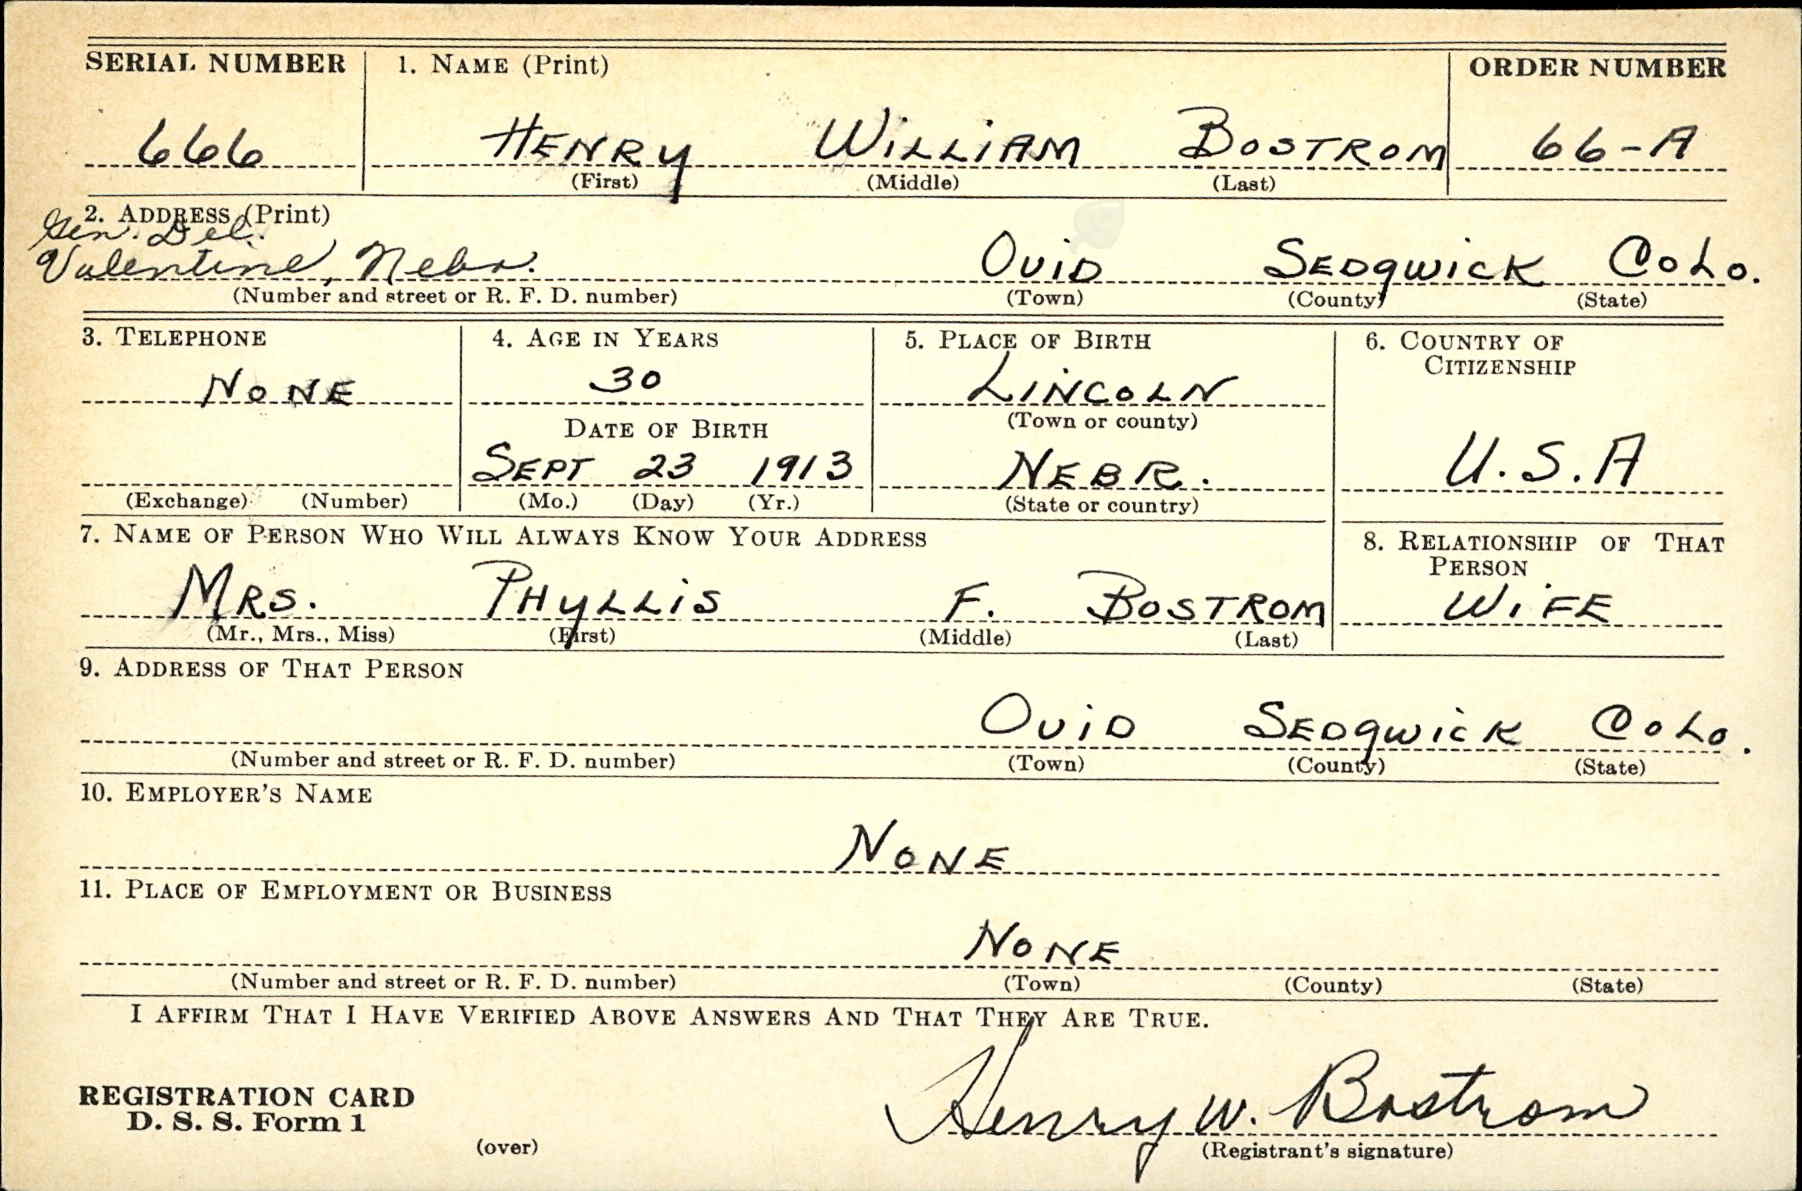 SERIAL NUMBER 1. NAME (Print) ORDER NUMBER
666 HENRY WILLIAM BOSTROM 66-A
(First) (Middle) (Last)
2. ADDRESS (Print)
Gen. Del.
Valentine, Nebr. OVID SEDGWICK COLO.
(Number and street or R. F. D. number) (Town) (County) (State)
3. TELEPHONE 4. AGE IN YEARS 5. PLACE OF BIRTH 6. COUNTRY OF
CITIZENSHIP
NONE 30 LINCOLN
(Town or county)
DATE OF BIRTH
SEPT 23 1913 NEBR. U.S.A
(Exchange) (Number) (Mo.) (Day) (Yr.) (State or country)
7. NAME OF PERSON WHO WILL ALWAYS KNOW YOUR ADDRESS 8. RELATIONSHIP OF THAT
PERSON
MRS. PHYLLIS F. BOSTROM WIFE
(Mr., Mrs., Miss) (First) (Middle) (Last)
9. ADDRESS OF THAT PERSON
OVID SEDGWICK COLO.
(Number and street or R. F. D. number) (Town) (County) (State)
10. EMPLOYER'S NAME
NONE
11. PLACE OF EMPLOYMENT OR BUSINESS
NONE
(Number and street or R. F. D. number) (Town) (County) (State)
I AFFIRM THAT I HAVE VERIFIED ABOVE ANSWERS AND THAT THEY ARE TRUE.
REGISTRATION CARD
D. S. S. Form 1 Henry W. Bostrom
(over) (Registrant's signature)